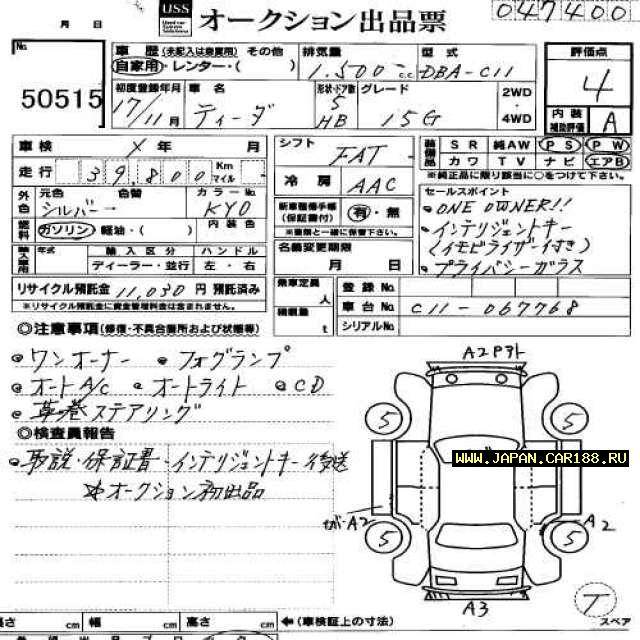 USS オークション出品票 047400
月 日
No. 50515
車歴 (未記入は自家用) その他
自家用・レンター・( )
排気量 1.500cc
型式 DBA-C11
評価点 4
初度登録年月 17/11月
車名 ティーダ
形状・ドア数 5 HB
グレード 15G
2WD ・ 4WD
内装補助評価 A
車検 X年 月
シフト FAT
装備品 SR 純AW PS PW
カワ TV ナビ エアB
※純正品に限り該当に○をつけて下さい。
走行 39,800 Km マイル
冷房 AAC
外色 元色 シルバー 色替 → カラーNo. KY0
燃料 ガソリン・軽油・( ) 内装色
新車整備手帳(保証書付) 有・無
※書類と一緒に保管下さい。
セールスポイント
・ONE OWNER!!
・インテリジェントキー
(イモビライザー付き)
・プライバシーガラス
輸入車 年式 輸入区分 ハンドル
ディーラー・並行 左・右
名義変更期限
月 日
リサイクル預託金 11,030円 預託済み
※リサイクル預託金に資金管理料金は含まれません。
乗車定員 人
積載量 t
登録No.
車台No. C11-067768
シリアルNo.
◎注意事項(修復・不具合箇所および状態等)
・ワンオーナー ・フォグランプ
・オートA/C ・オートライト ・CD
・革巻ステアリング
◎検査員報告
・取説・保証書・インテリジェントキー後送
＊オークション初出品
A2Pヨ外
5 5
WWW.JAPAN.CAR188.RU
A2 A2
5 5
A3
T スペア
長さ cm 幅 cm 高さ cm ←(車検証上の寸法)